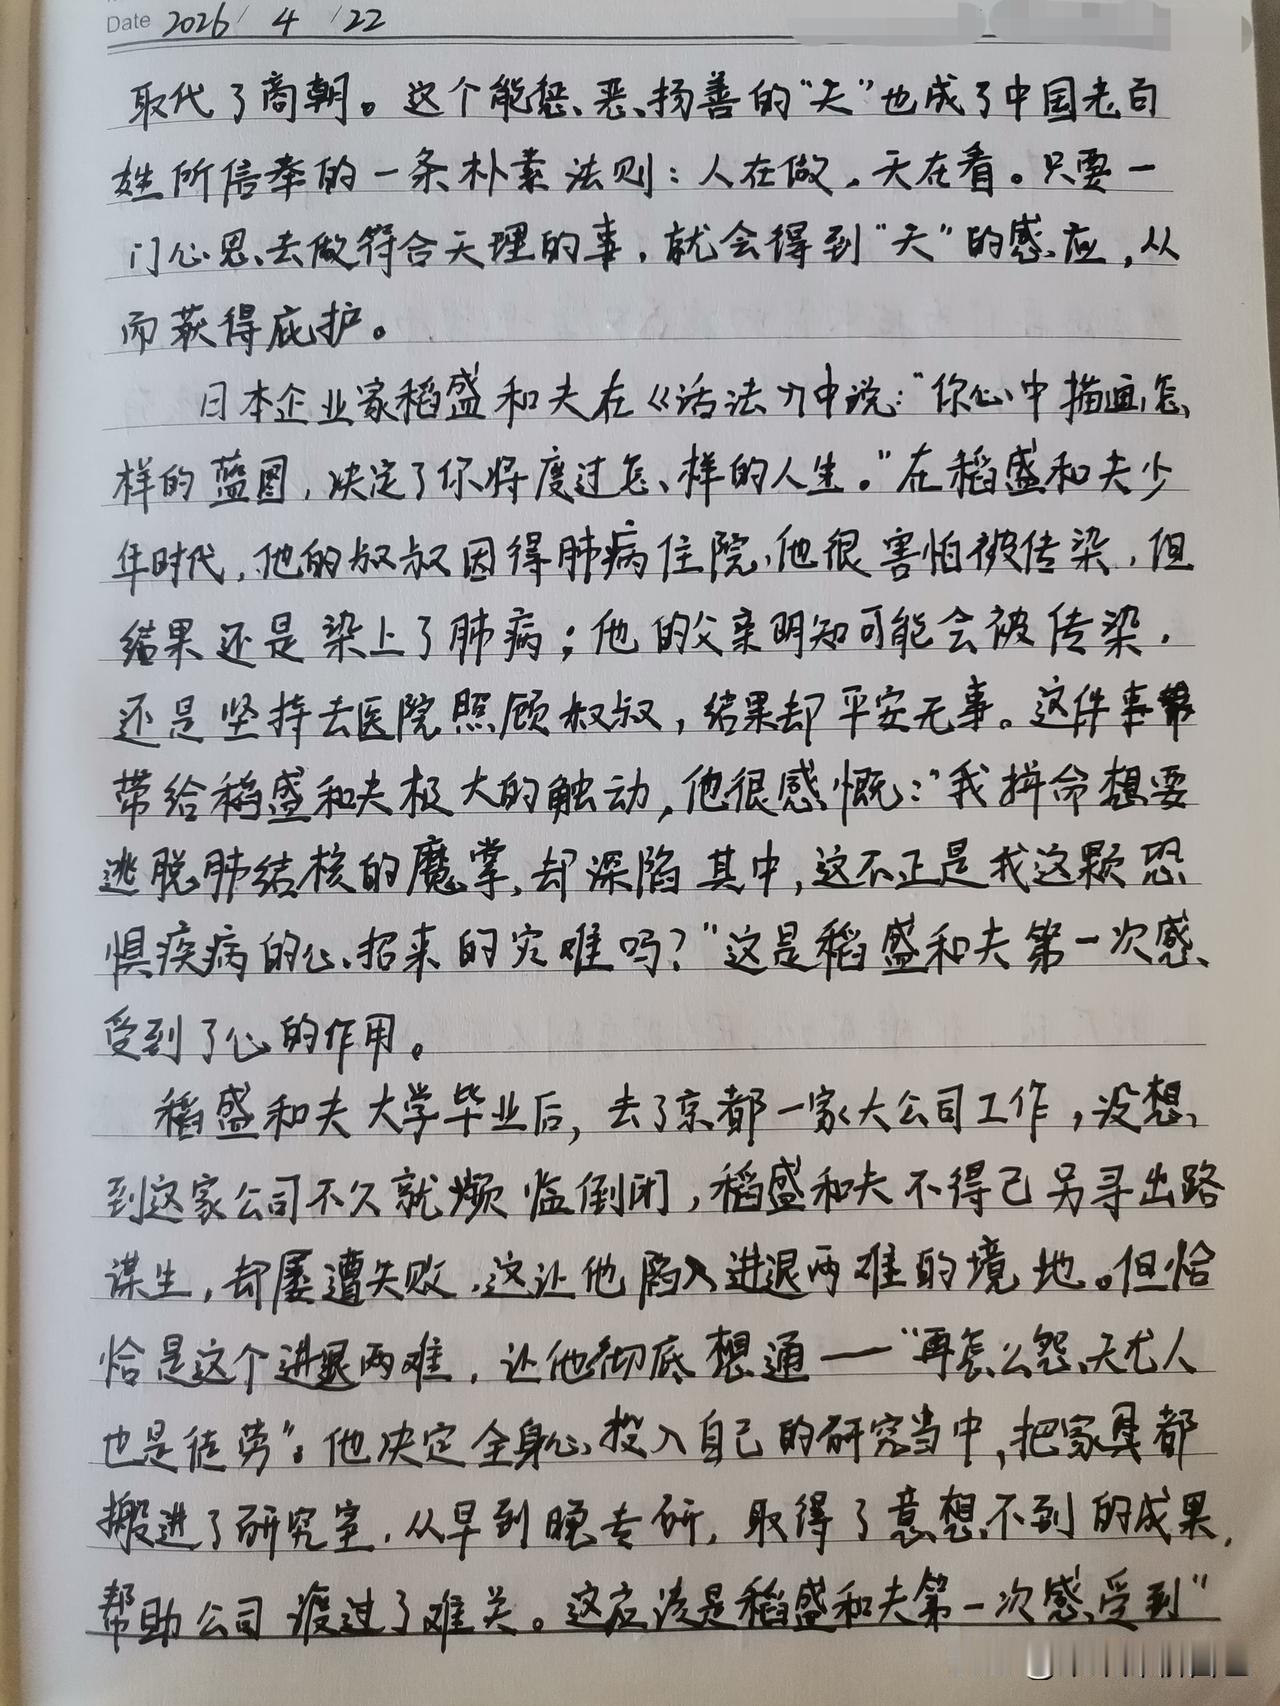 Date 2026/4/22
取代了商朝。这个能惩恶扬善的“天”也成了中国老百
姓所信奉的一条朴素法则：人在做，天在看。只要一
门心思去做符合天理的事，就会得到“天”的感应，从
而获得庇护。
日本企业家稻盛和夫在《活法》中说：“你心中描画怎
样的蓝图，决定了你将度过怎样的人生。”在稻盛和夫少
年时代，他的叔叔因得肺病住院，他很害怕被传染，但
结果还是染上了肺病；他的父亲明知可能会被传染，
还是坚持去医院照顾叔叔，结果却平安无事。这件事
带给稻盛和夫极大的触动，他很感慨：“我拼命想要
逃脱肺结核的魔掌，却深陷其中，这不正是我这颗恐
惧疾病的心招来的灾难吗？”这是稻盛和夫第一次感
受到了心的作用。
稻盛和夫大学毕业后，去了京都一家大公司工作，没想
到这家公司不久就濒临倒闭，稻盛和夫不得已另寻出路
谋生，却屡遭失败，这让他陷入进退两难的境地。但恰
恰是这个进退两难，让他彻底想通——“再怎么怨天尤人
也是徒劳”。他决定全身心投入自己的研究当中，把家具都
搬进了研究室，从早到晚专研，取得了意想不到的成果，
帮助公司渡过了难关。这应该是稻盛和夫第一次感受到“